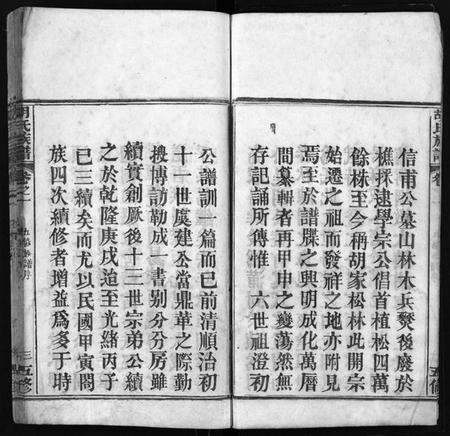 胡氏族譜
信甫公墓山林木兵燹後廢於
樵採建學宗公倡首植松四萬
餘株至今稱胡家松林此開宗
始遷之祖而發祥之地亦附見
焉至於譜牒之興明成化萬厯
間纂輯者再甲申之變蕩然無
存記誦所傳惟 六世祖澄初
公譜訓一篇而已前清順治初
十一世虞建公當鼎革之際勤
搜博訪勒成一書別分分房雖
續實創厥後十三世宗弟公續
之於乾隆庚戌迨至光緒丙子
已三續矣而尤以民國甲寅閤
族四次續修者增益爲多于時
胡氏族譜 卷之一
三 五修